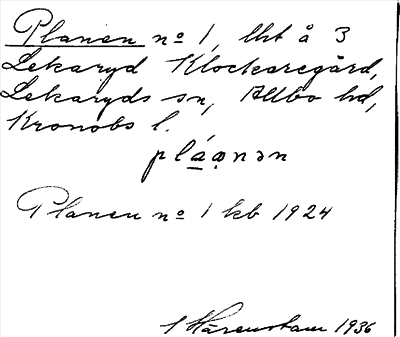 Planen nº 1, lht å 3
Lekaryd Klockaregård,
Lekaryds sn, Allbo hd,
Kronobs l.
plá̱ọnən
Planen nº 1 kb 1924
Härenstam 1936